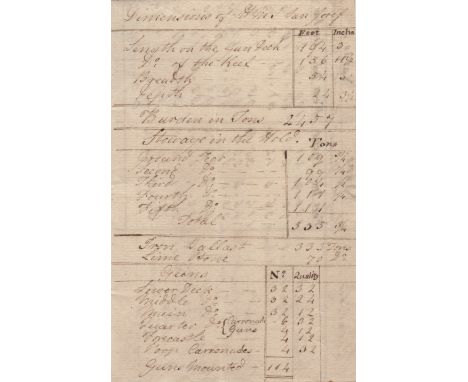 Dimensions of H.M.S. San Josef
Feet Inches
Length on the Gun Deck 194 3
Do. of the Keel 156 11½
Breadth 54 3
Depth 24 3½
Burden in Tons 2457
Stowage in the Hold. Tons
Ground Tier 109 ¾
Second Do.
Third Do.
Fourth Do.
Fifth Do. 114
Total 535 ¾
Iron Ballast 335 Tons
Lime Stone 70 Do.
Guns No. Quality
Lower Deck 32 32
Middle Do. 32 24
Main Do. 32 12
Quarter Do. Carronade 6 32
Guns 4 12
Forecastle 4 12
Poop Carronades 4 32
Guns Mounted 114